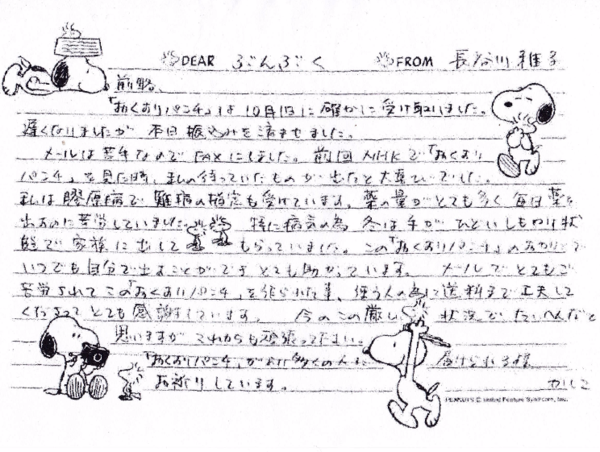 DEAR ぶんぶく FROM 長谷川 雅子
前略、
「おくすりパンチ」は10月1日に確かに受け取りました。
遅くなりましたが 本日振込みを済ませました。
メールは苦手なのでFAXにしました。前回NHKで「おくすり
パンチ」を見た時、私の待っていたものが出たと大喜びでした。
私は膠原病で難病の指定も受けています。薬の量がとても多く毎日薬を
出すのに苦労していました。特に病気の為 冬は手がひどいしもやけ状
態で家族に出してもらっていました。この「おくすりパンチ」のおかげで
いつでも自分で出すことができとても助かっています。メールでとてもご
苦労されてこの「おくすりパンチ」を作られた事、使う人の為に送料まで工夫して
くださってとても感謝しています。今のこの厳しい状況でたいへんだと
思いますがこれからも頑張って下さい。
「おくすりパンチ」がより多くの人に届けられる様
お祈りしています。 かしこ
PEANUTS © United Feature Syndicate, Inc.